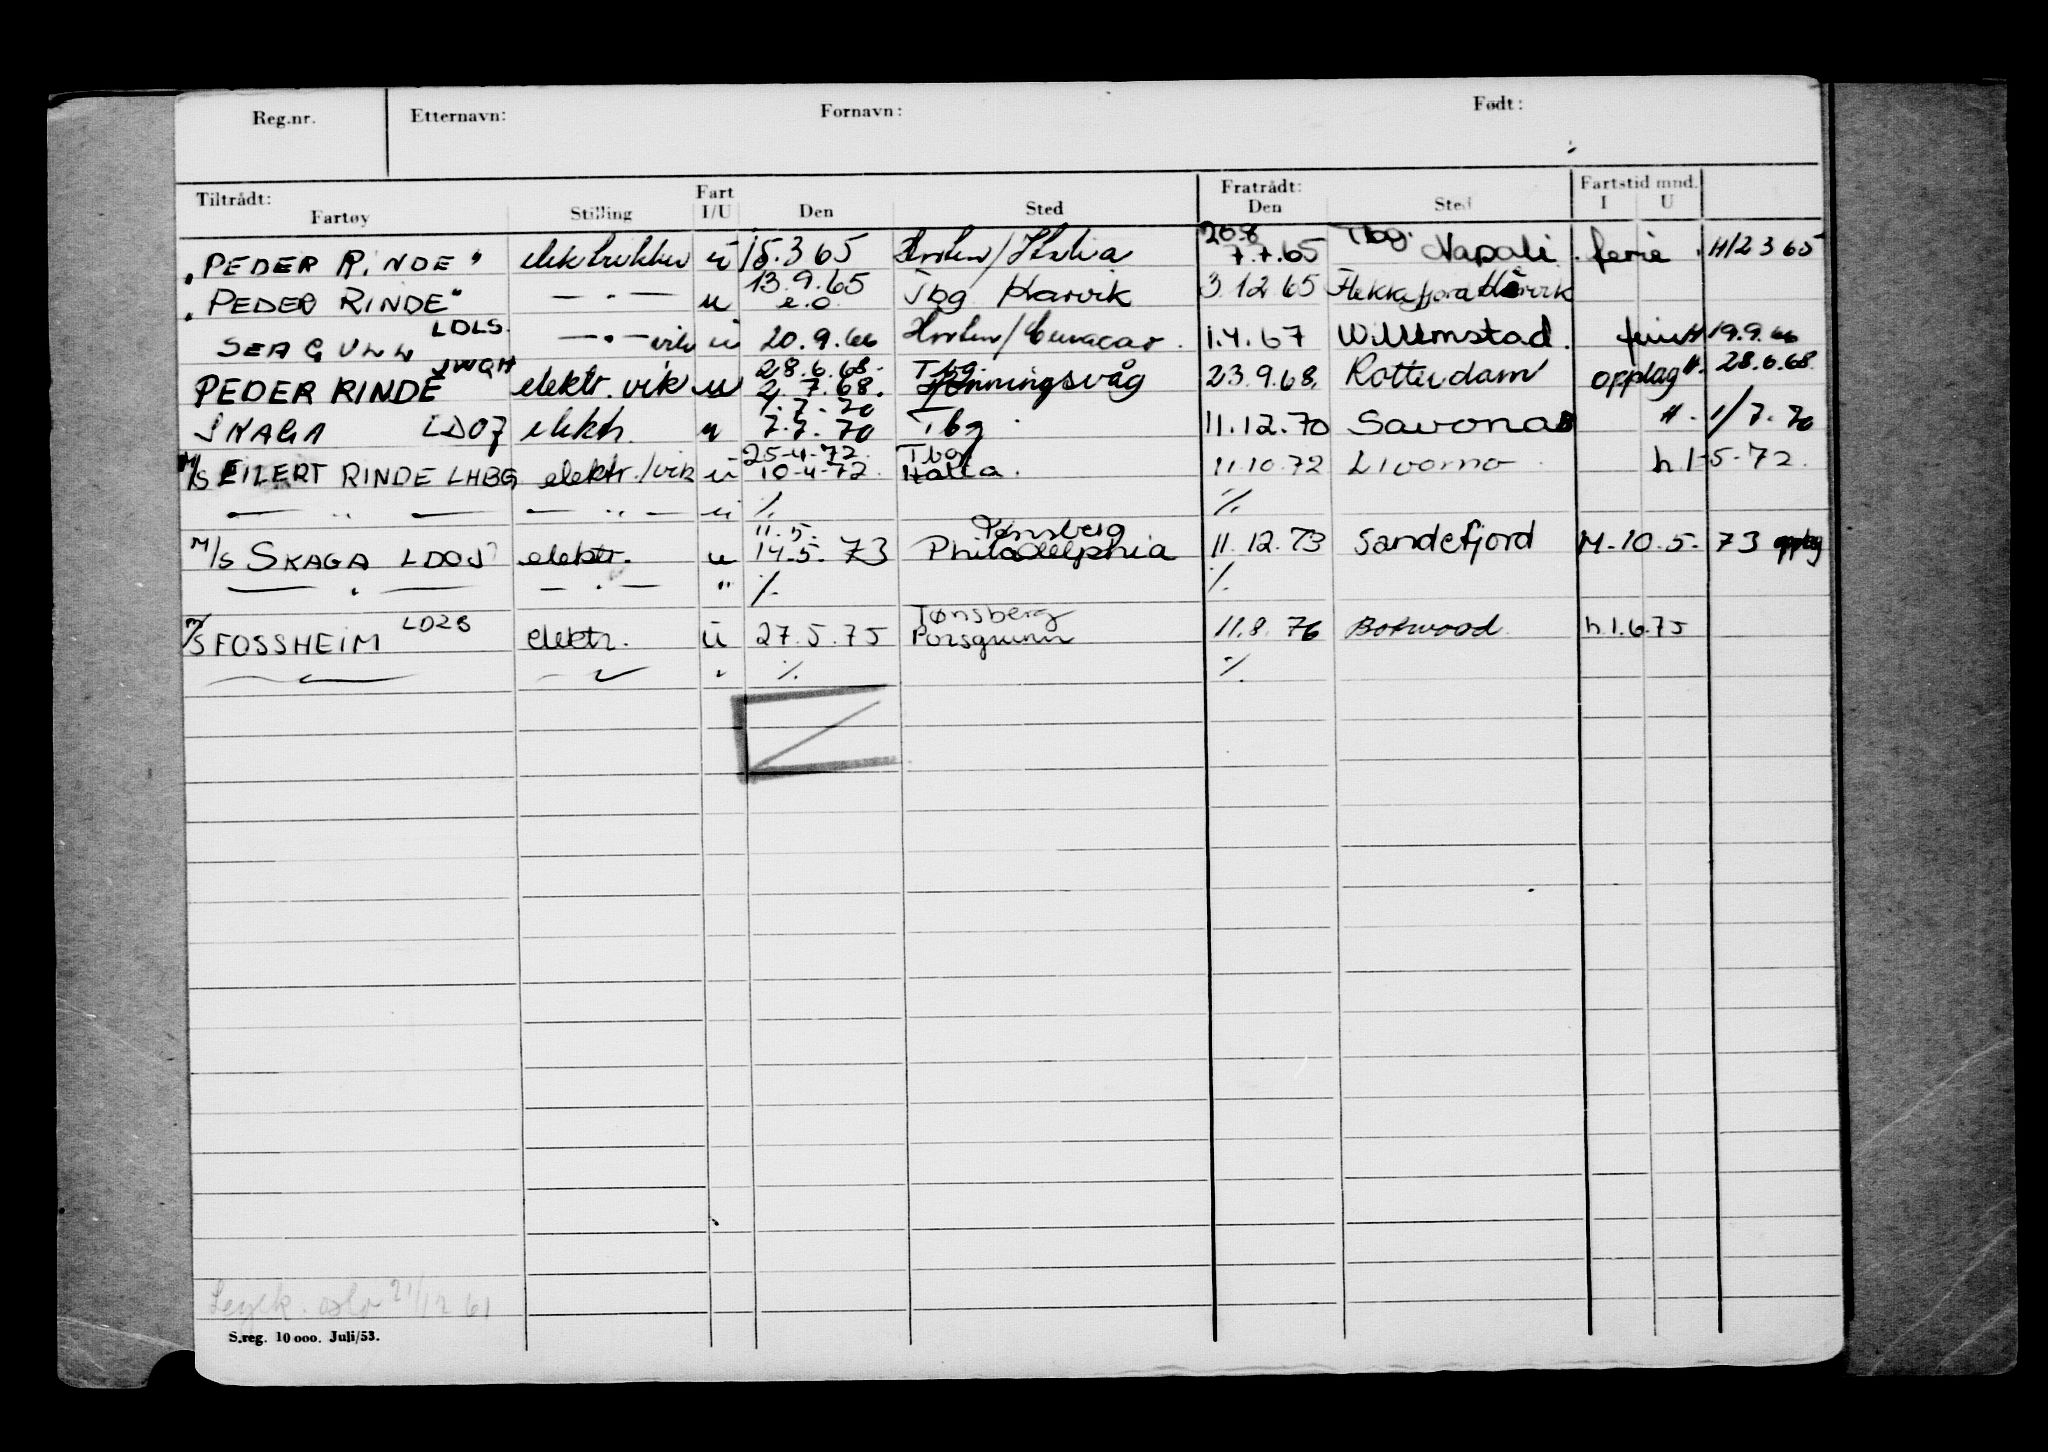 Reg.nr. Etternavn: Fornavn: Født:
Tiltrådt: Fart Fratrådt: Fartstid mnd.
Fartøy Stilling I/U Den Sted Den Sted I U
20.8 Tbg.
"PEDER RINDE" elektrikker u 15.3 65 Horten/Italia 7.7.65 Napoli. ferie. H/2 3 65
13.9.65
"PEDER RINDE" — " — u e.o. Tbg Narvik 3.12.65 Flekkefjord
LDLS.
SEAGULL — " — vik u 20.9.66 Horten/Curacao. 1.4.67 Willemstad. ferie H 19.9.66
JWQH 28.6.68. Tbg.
PEDER RINDE elektr. vik u 2.7.68. Honningsvåg 23.9.68. Rotterdam opplag H. 28.6.68.
1.7.70
SNAGA LDOZ elektr. u 7.7.70 Tbg. 11.12.70 Savona H. 1/7.70
25-4-72. Tbg
M/S EILERT RINDE LHBG elektr./vik u 10-4-72. 11.10.72 Livorno h 1-5-72.
— " — — " — u % %
11.5. Tønsberg
M/S SKAGA LDOJ elektr. u 14.5.73 Philadelphia 11.12.73 Sandefjord M-10.5.73 opplag
— " — — " — " % %
LD2B Tønsberg
M/S FOSSHEIM elektr. u 27.5.75 Porsgrunn 11.8.76 Botwood h.1.6.75
— " — — " — " % %
oslo 21/12 61
S.reg. 10 000. Juli/53.